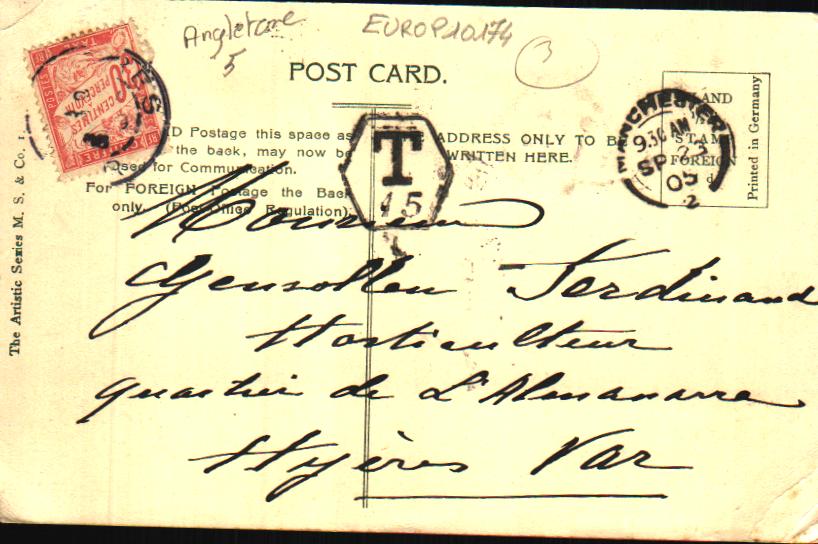 Angleterre
5
EUROP10174
3
POST CARD.
D Postage this space as
the back, may now be
used for Communication.
For FOREIGN Postage the Back
only. (Post Office Regulation).
ADDRESS ONLY TO BE
WRITTEN HERE.
T
15
MANCHESTER
9.30 AM
SP 23
05
2
LAND
STAMP
FOREIGN
d
Printed in Germany
POSTES
CENTIMES
PERCEVOIR
The Artistic Series M. S. & Co.
Monsieur
Gensollen Ferdinand
Horticulteur
quartier de L'Almanarre
Hyères Var